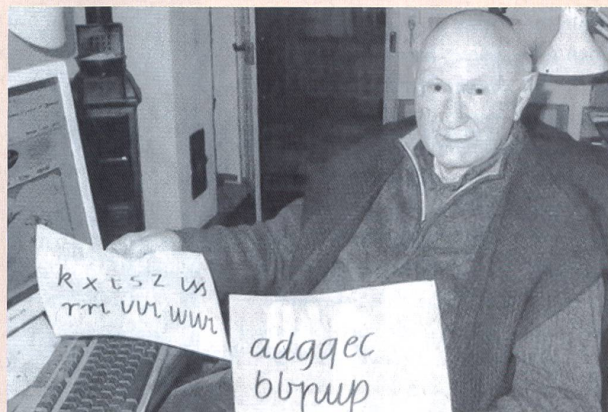 k x t s z us
rri vvr wwr
adgqec
bbpup